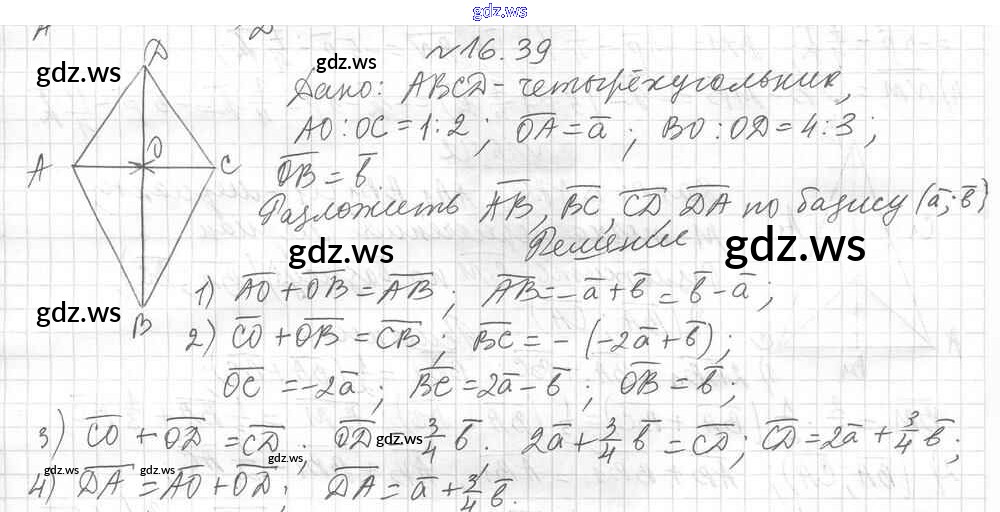 gdz.ws
А Д
№16.39
gdz.ws gdz.ws
Дано: ABCD - четырёхугольник,
AO : OC = 1:2 ; O̅A̅ = a̅ ; BO : OD = 4:3 ;
O̅B̅ = b̅
Разложить A̅B̅, B̅C̅, C̅D̅, D̅A̅ по базису (a̅; b̅)
Решение
D
A O C
B
gdz.ws gdz.ws gdz.ws
1) A̅O̅ + O̅B̅ = A̅B̅ ; A̅B̅ = -a̅ + b̅ = b̅ - a̅ ;
2) C̅O̅ + O̅B̅ = C̅B̅ ; B̅C̅ = - (-2a̅ + b̅) ;
O̅C̅ = -2a̅ ; B̅C̅ = 2a̅ - b̅ ; O̅B̅ = b̅ ;
3) C̅O̅ + O̅D̅ = C̅D̅ ; O̅D̅ gdz.ws 3/4 b̅. 2a̅ + 3/4 b̅ = C̅D̅ ; C̅D̅ = 2a̅ + 3/4 b̅ ;
gdz.ws gdz.ws gdz.ws
4) D̅A̅ = A̅O̅ + O̅D̅ ; D̅A̅ = a̅ + 3/4 b̅.